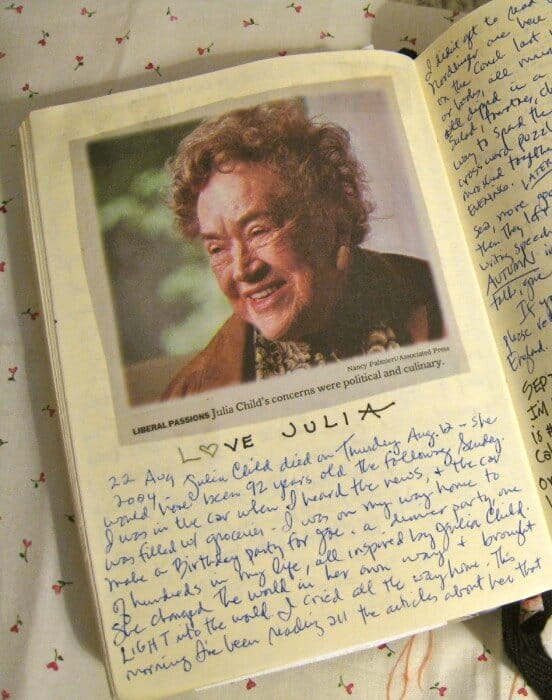 Nancy Palmieri/Associated Press
LIBERAL PASSIONS Julia Child's concerns were political and culinary.
LOVE JULIA
22 Aug Julia Child died on Thursday Aug. 12 - she
2004 would have been 92 years old the following Sunday.
I was in the car when I heard the news, & the car
was filled w/ groceries - I was on my way home to
make a Birthday party for Joe. a dinner party, one
of hundreds in my life, all inspired by Julia Child.
She changed the world in her own way & brought
LIGHT into the world. I cried all the way home. This
morning I've been reading all the articles about her that
I didn't get to read
on the
all
way to spend the
cross word puzzle
EVENING. LATER
see more
then they
writing speech
AUTUMN
If you
please
England.
SEP
IM